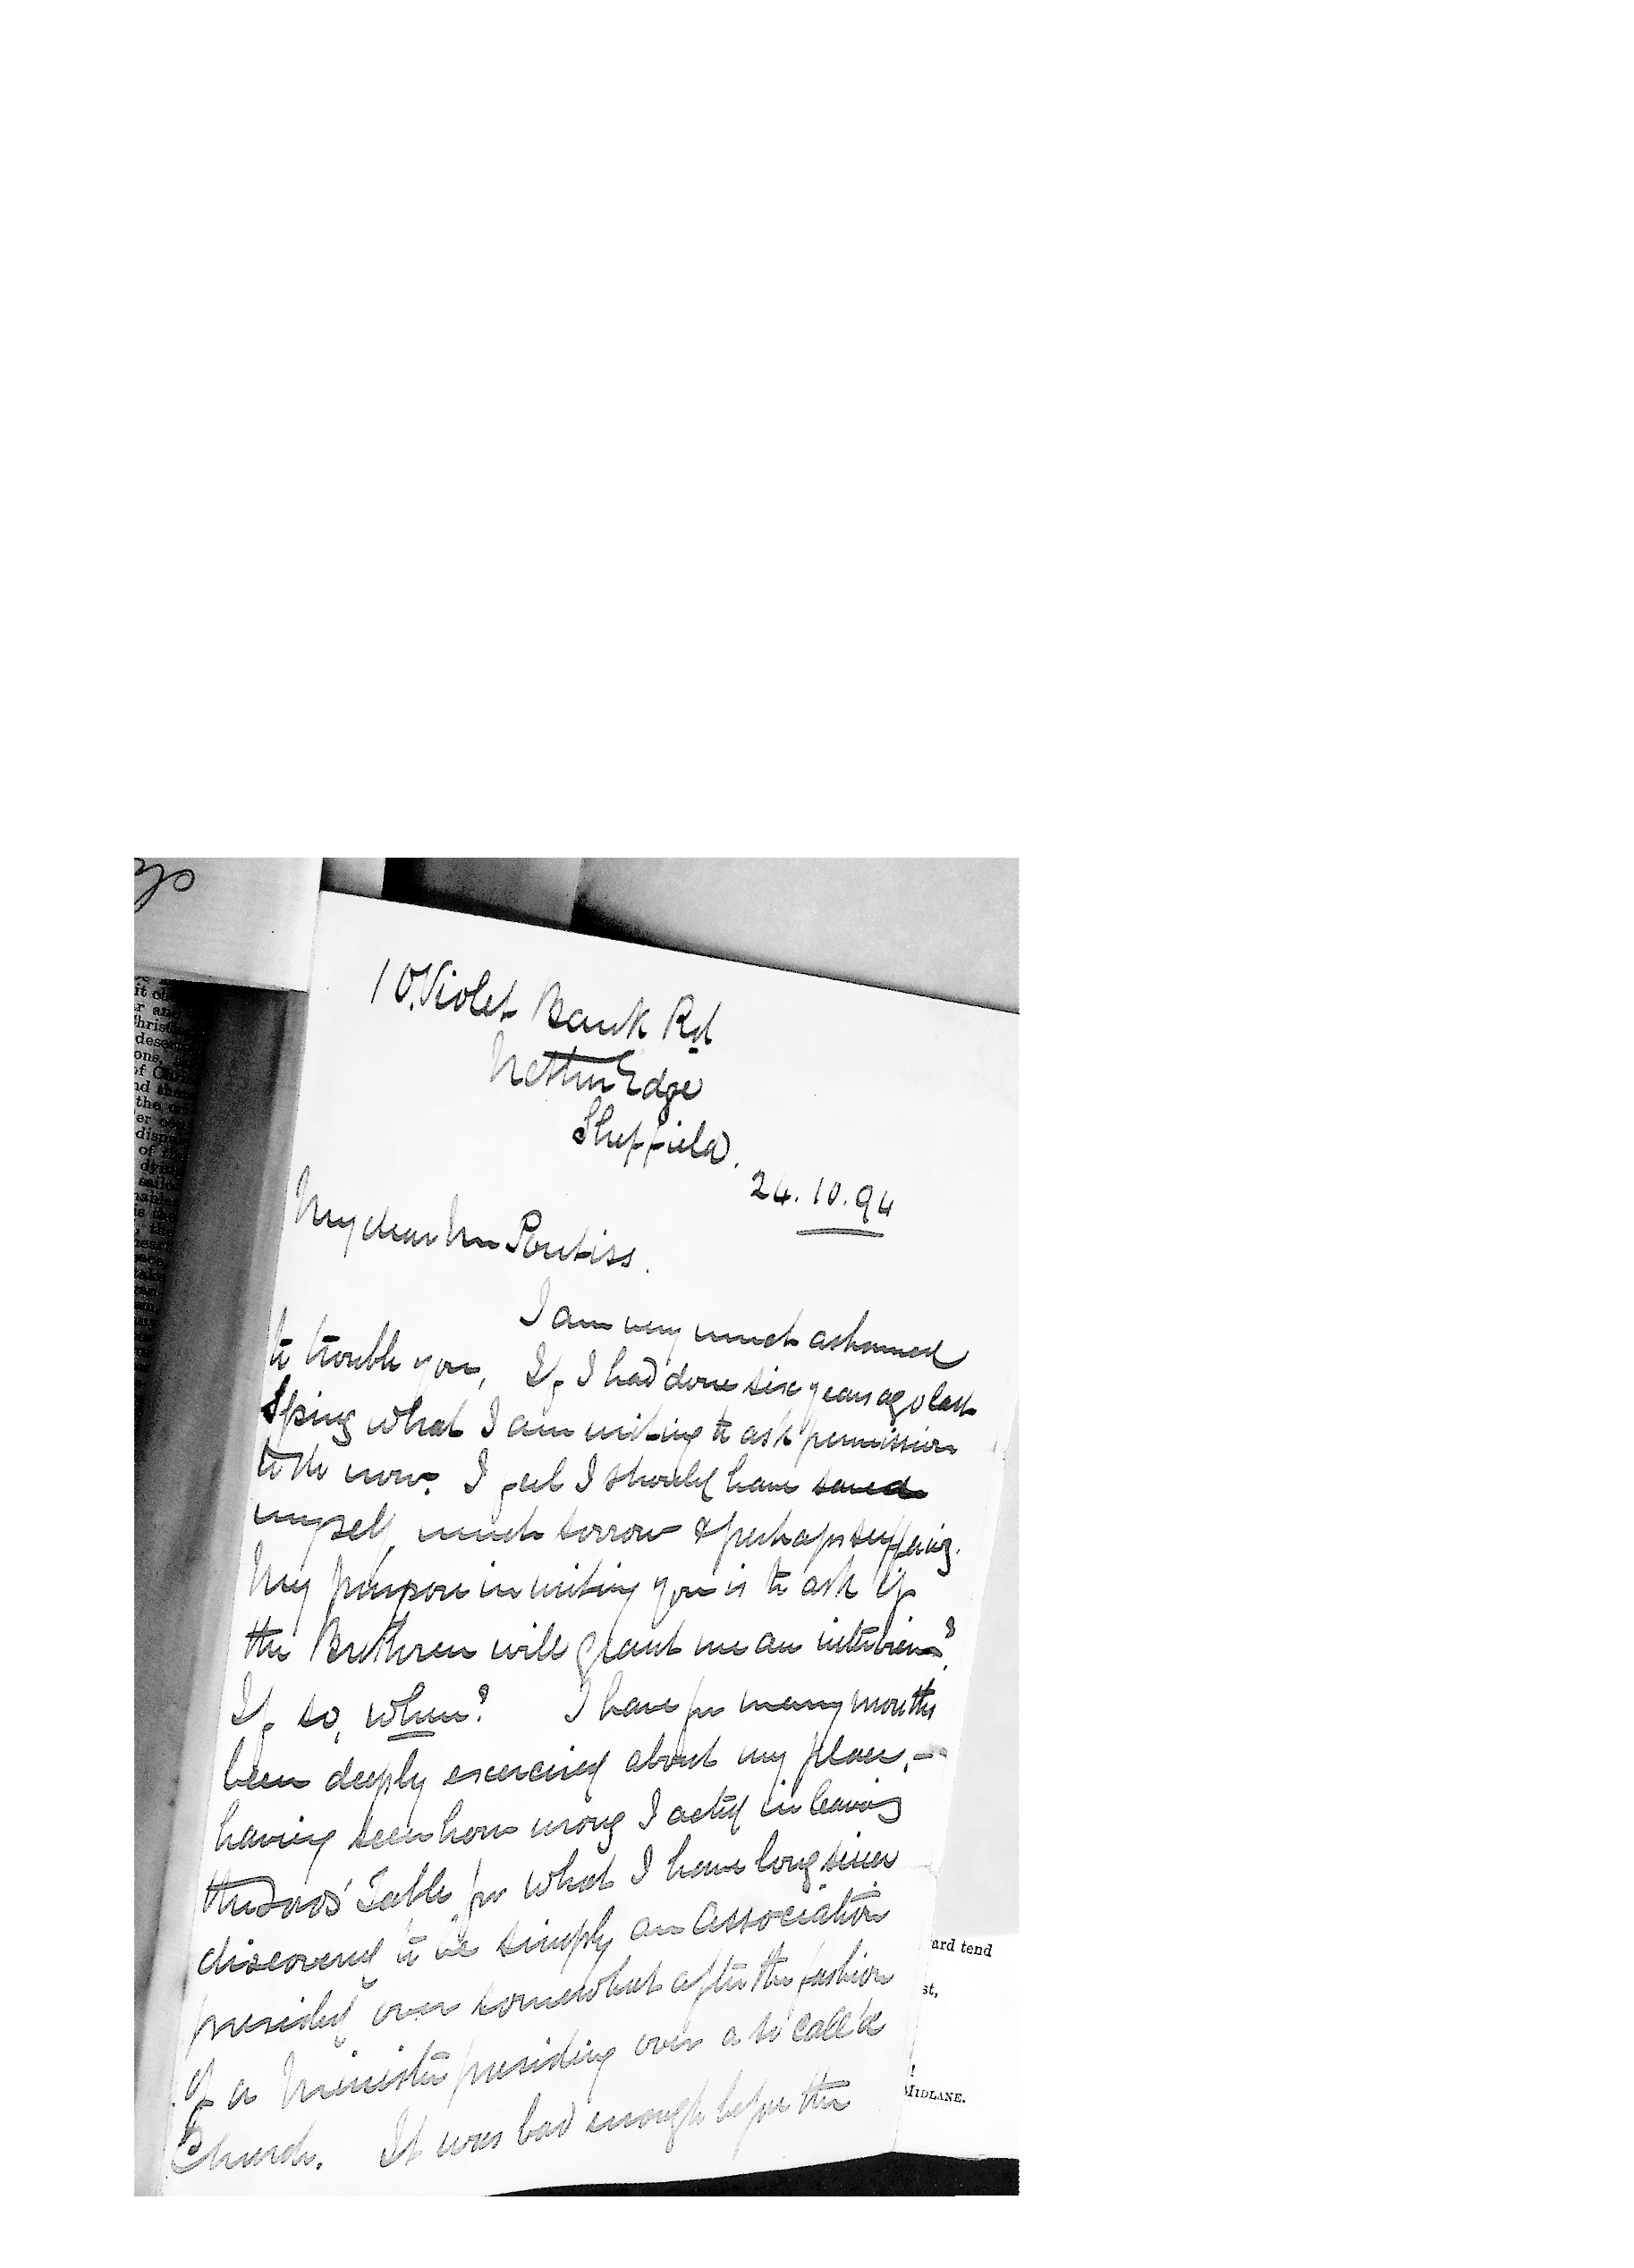 10. Violet Bank Rd
Nether Edge
Sheffield.
24.10.94
My dear Mr
I am very much ashamed
to trouble you, If I had done six years ago last
Spring what I am writing to ask permission
to do now. I feel I should have saved
myself, much sorrow & perhaps suffering.
My purpose in writing you is to ask if
the Brethren will grant me an interview?
If so, when? I have for many months
been deeply exercised about my place, —
having seen how wrong I acted in leaving
the Lord's Table for what I have long since
discovered to be simply an Association
presided over somewhat after the fashion
of a Minister presiding over a so call'd
Church. It was bad enough before the
ard tend
st,
MIDLANE.